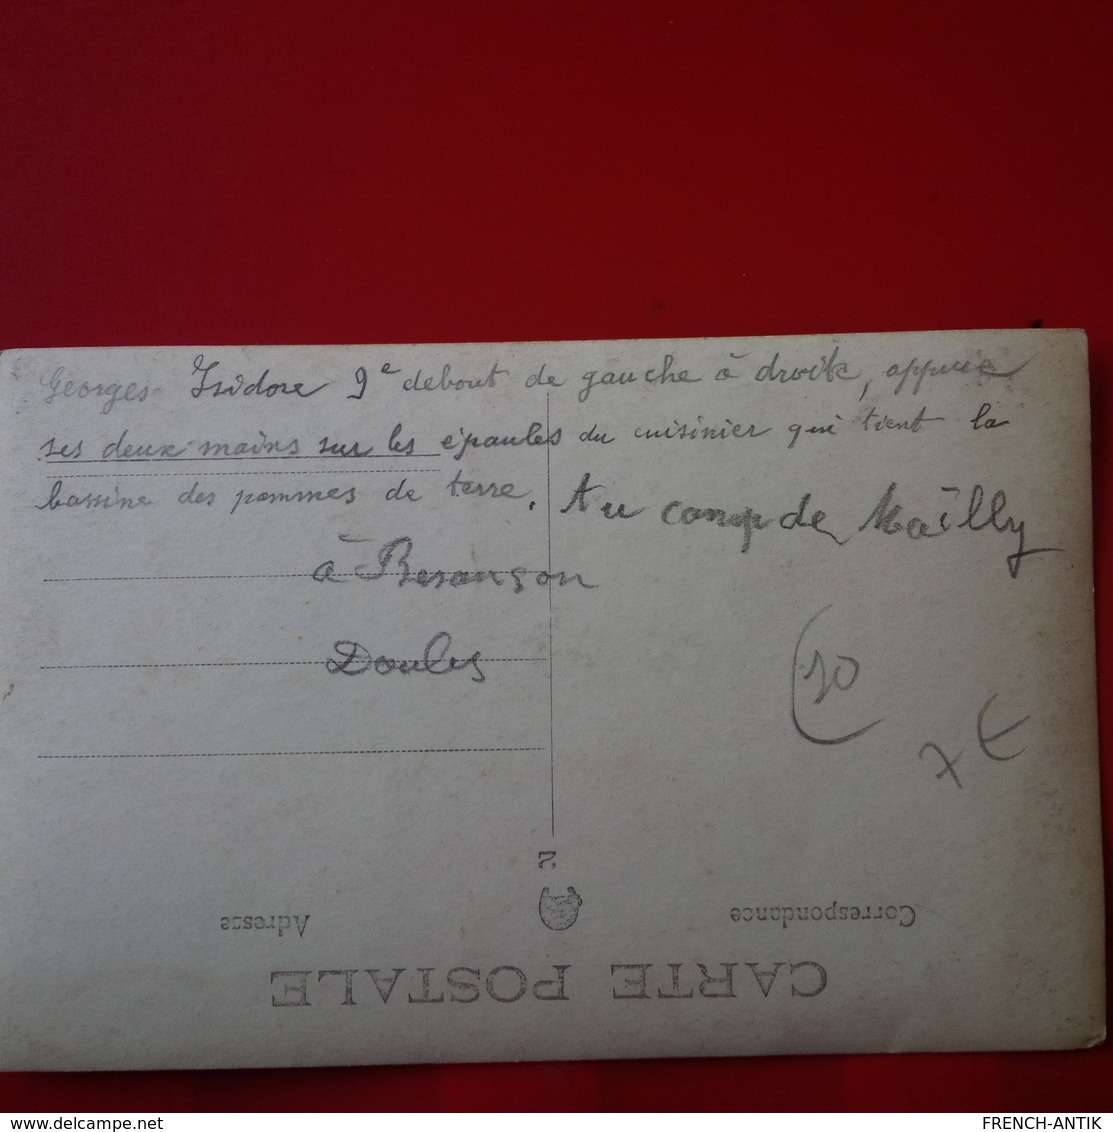 Georges Isidore 9e debout de gauche à droite, appuie
ses deux mains sur les épaules du cuisinier qui tient la
bassine des pommes de terre. Au camp de Mailly
à Besançon
Doubs
10
7 €
Z
Correspondance
Adresse
CARTE POSTALE
www.delcampe.net
FRENCH-ANTIK